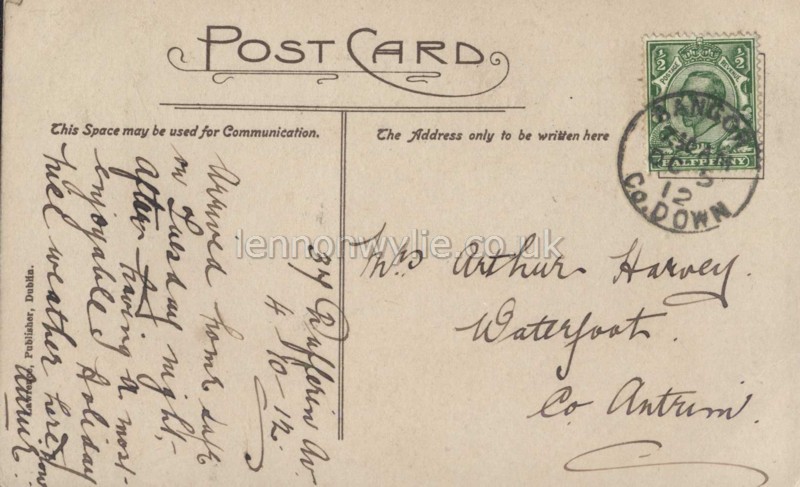 POST CARD
This Space may be used for Communication.
The Address only to be written here
½ ½
POSTAGE REVENUE
HALFPENNY
BANGOR
12
Co. DOWN
37 Dufferin Av.
4-10-12.
Arrived home safe
on Tuesday night,-
after having a most-
enjoyable holiday
weather here now
Mrs Arthur Harvey.
Waterfoot.
Co Antrim.
Publisher, Dublin.
lennonwylie.co.uk